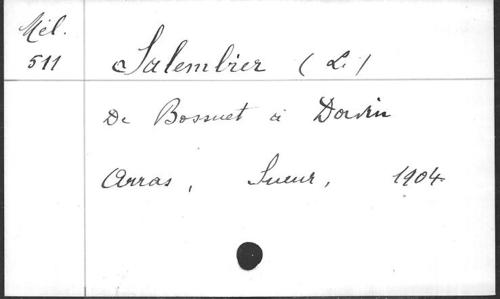 Mél.
511
Salembier (L.)
De Bossuet à Darwin
Arras, Sueur, 1904